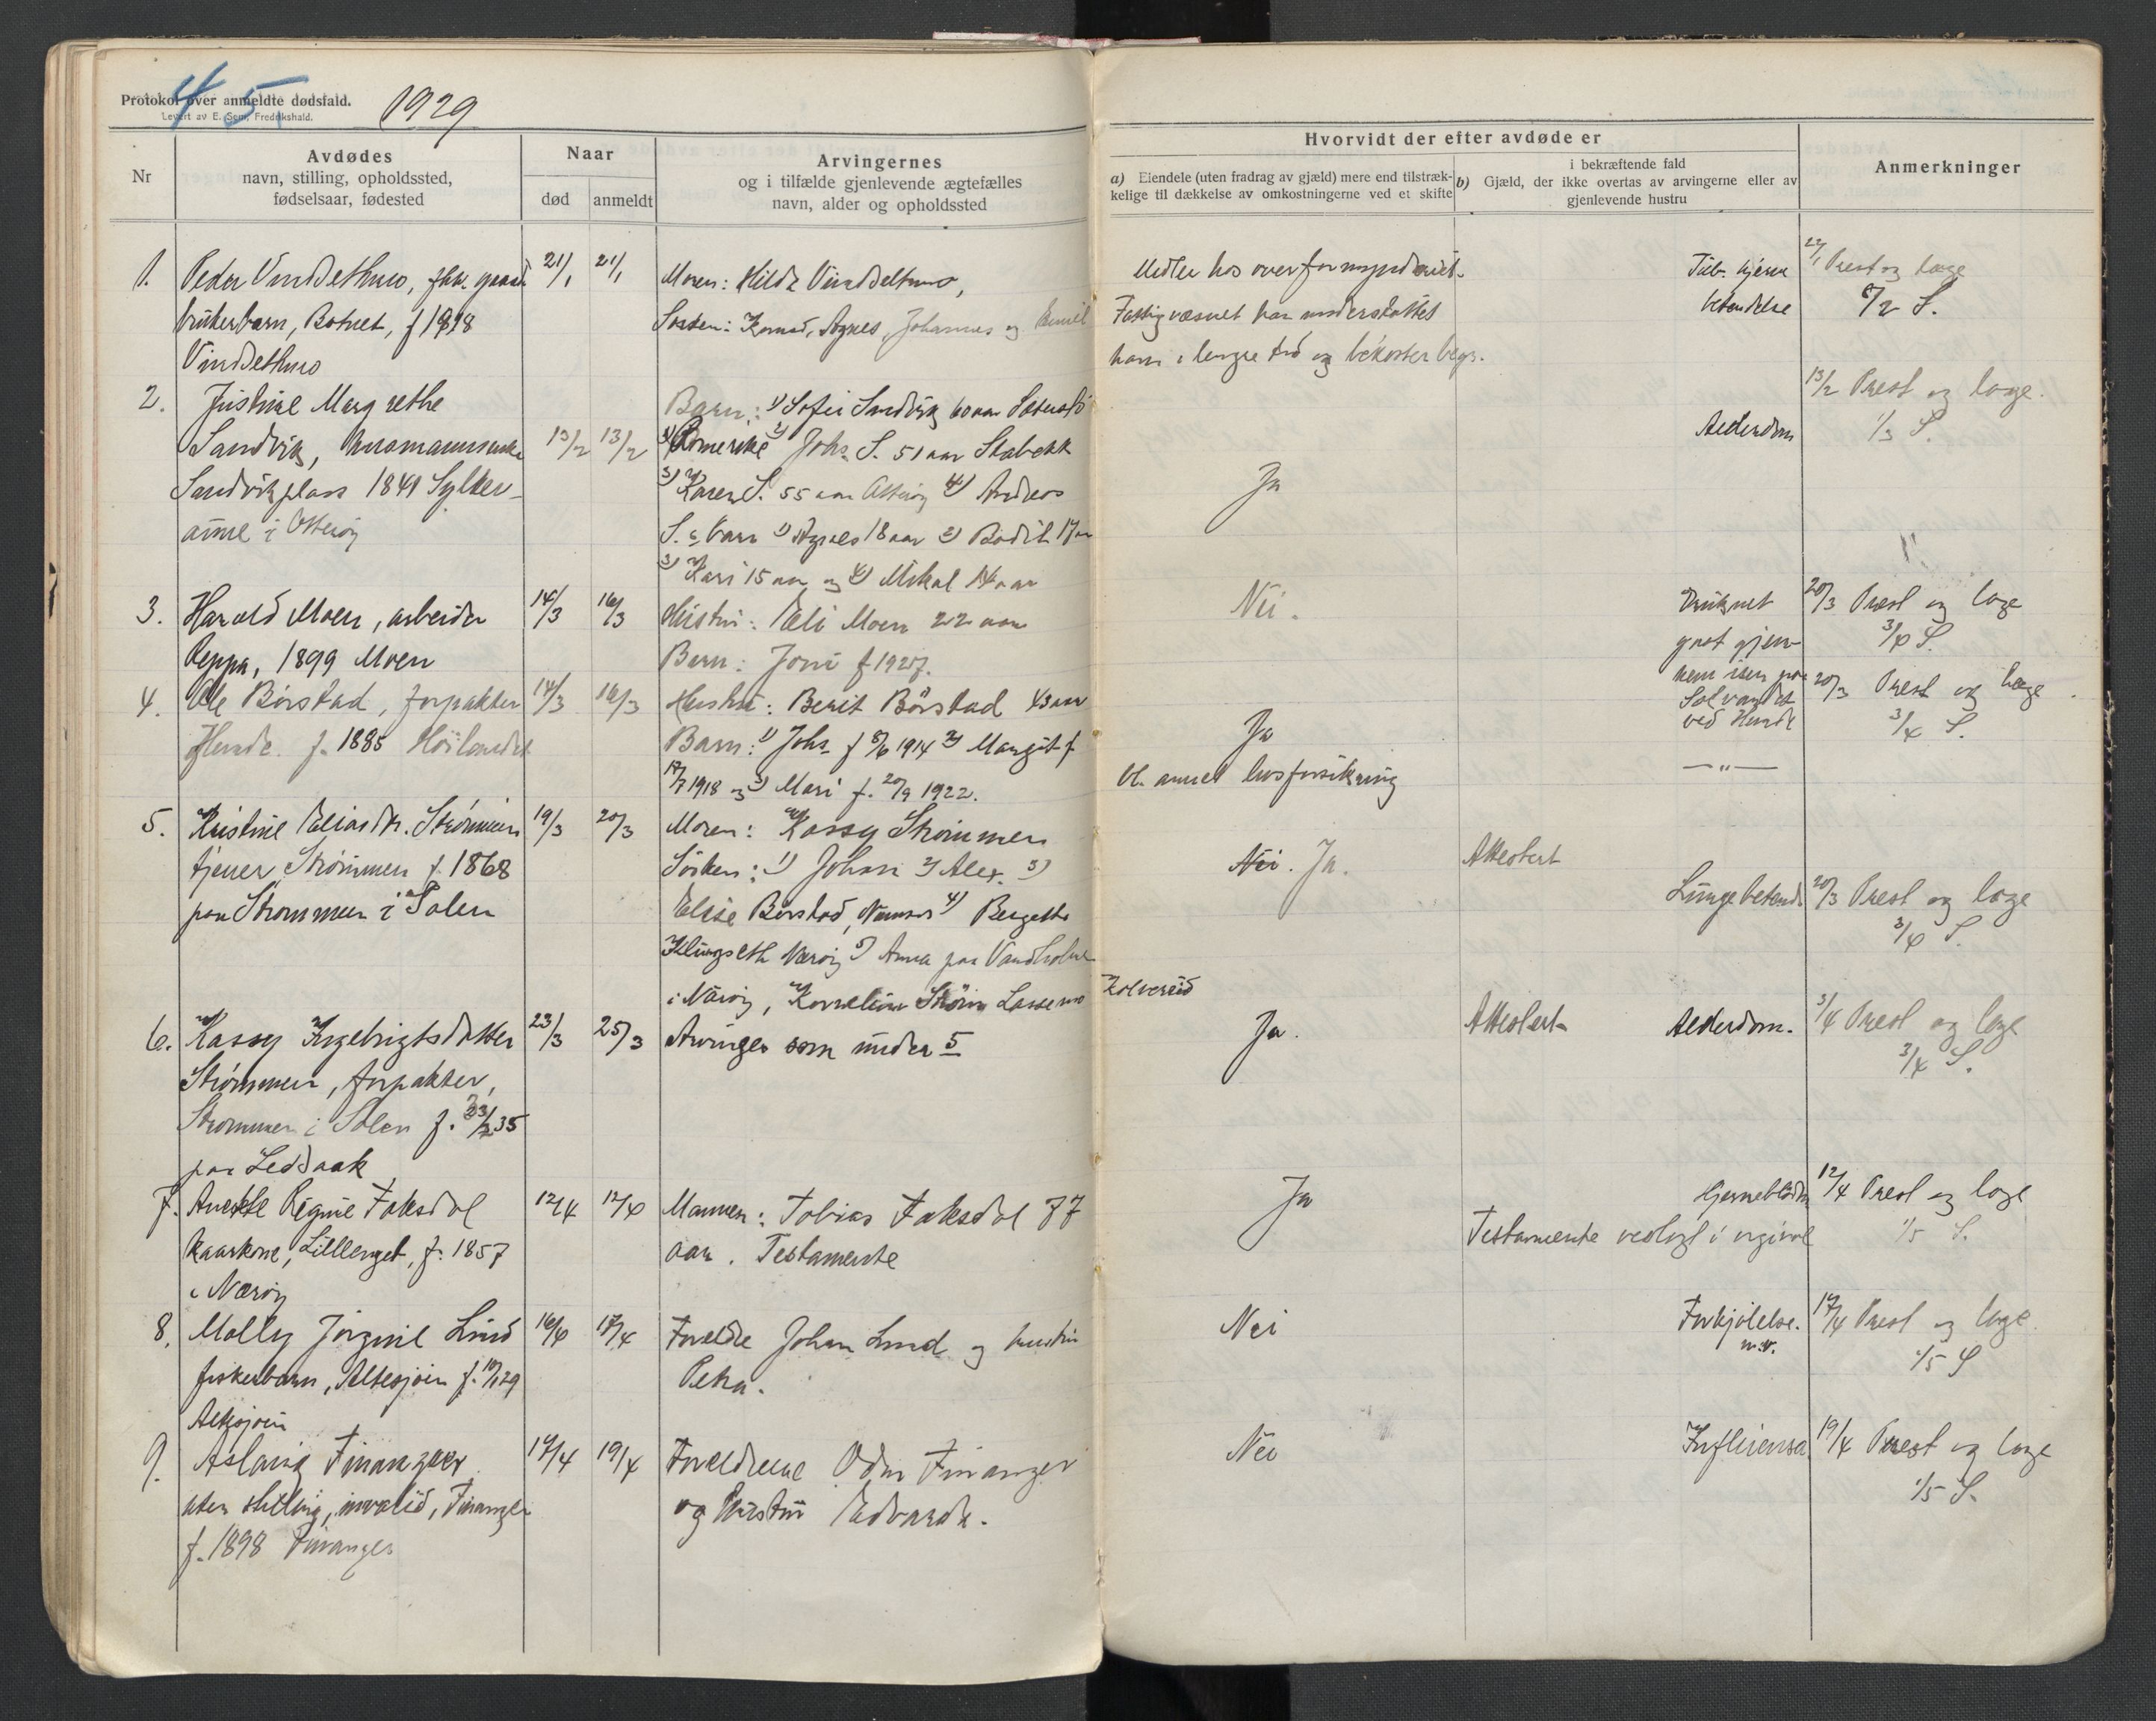 Protokol over anmeldte dødsfald.
Levert av E. Sem, Fredrikshald.
4 5
1929
Nr
Avdødes
navn, stilling, opholdssted,
fødselsaar, fødested
Naar
død
anmeldt
Arvingernes
og i tilfælde gjenlevende ægtefælles
navn, alder og opholdssted
Hvorvidt der efter avdøde er
a) Eiendele (uten fradrag av gjæld) mere end tilstræk-
kelige til dækkelse av omkostningerne ved et skifte
i bekræftende fald
b) Gjæld, der ikke overtas av arvingerne eller av
gjenlevende hustru
Anmerkninger
1. Peder Vinddethmo, 21/1 21/1 Moren: Hilda
brukerbarn, Botnet, f 1918
Søsken: Konrad, Agnes, Johannes og Emil
Midler hos overformynderiet.
Fattigvæsnet har understøttet
ham i længre tid og bekoster begr.
Tub. hjerne
betendelse
22/1 Prest og lage
/2 S.
2. Justine Margrethe
Sandvik, 13/2 13/2
Sandvikplass 1841 Sylter-
i Otterøy
Barn: 1) Sofie Sandvik 60 aar
Romerike 2) Johs. S. 51 aar Stabekk
3) Karen S. 55 aar Otterøy 4) Andreas
S. s barn 1) Agnes 18 aar 2) Bodil 17 aar
3) Kari 15 aar og 4) Mikal 14 aar
Ja
Alderdom
13/2 Prest og lage.
1/3 S.
3. Harald Moen, arbeider 14/3 16/3 Hustru: Eli Moen 22 aar
Reppa, 1899 Moen
Barn: f 1927.
Nei.
Druknet
gaat gjen-
nem isen paa
Salvandet
ved Hunde
20/3 Prest og lage
3/4 S.
4. Ole Börstad, forpakter 14/3 16/3 Hustru: Berit Börstad 43 aar
Hunde. f. 1885 Høilandet
Barn: 1) Johs f 8/6 1914 2) Margit f.
17/7 1918 og 3) Mari f. 20/9 1922.
Ja
bl. annet livsforsikring
— " —
20/3 Prest og lage.
3/4 S.
5. Kristine Eliasdtr. Strömmen 19/3 20/3 Moren: Kassy Strömmen
tjener Strömmen f. 1868
paa Strömmen i Salen
Sösken: 1) Johan 2) Alex. 3)
Elise Börstad, Namsos 4) Bergette
Klingseth Nærøy 5) Anna paa
i Nærøy, Kornelius Ström Lassemo
Kolvereid
Nei. Ja.
Attestert
Lungebetend.
20/3 Prest og lage
3/4 S.
6. Kassy Ingebrigtsdatter 23/3 25/3 Arvinger som under 5
Strömmen, forpakter,
Strømmen i Salen f. 23/2 35
paa Leddaak
Ja.
Attestert
Alderdom.
3/4 Prest og lage
3/4 S.
7. Anette Regine Faksdal 12/4 12/4 Mannen: Tobias Faksdal 77
kaarkone, Lillenget, f. 1857
aar. Testamente
i Nærøy
Ja
Testamente vedlagt i orginal
Hjerneblødn.
12/4 Prest og lage
1/5 S.
8. Molly Jörgine Lund 16/4 17/4 Foreldre Johan Lund og hustru
fiskerbarn, Altesjøen f. 10/1 29
Petra.
Altesjøen
Nei
Forkjölelse.
m.v.
17/4 Prest og lage.
1/5 S
9. Aslaug Finanger 17/4 19/4 Foreldrene Odin Finanger
uten stilling, invalid, Finanger
og hustru Edvarda.
f. 1898 Finanger
Nei
Influensa.
19/4 Prest og lage
1/5 S.